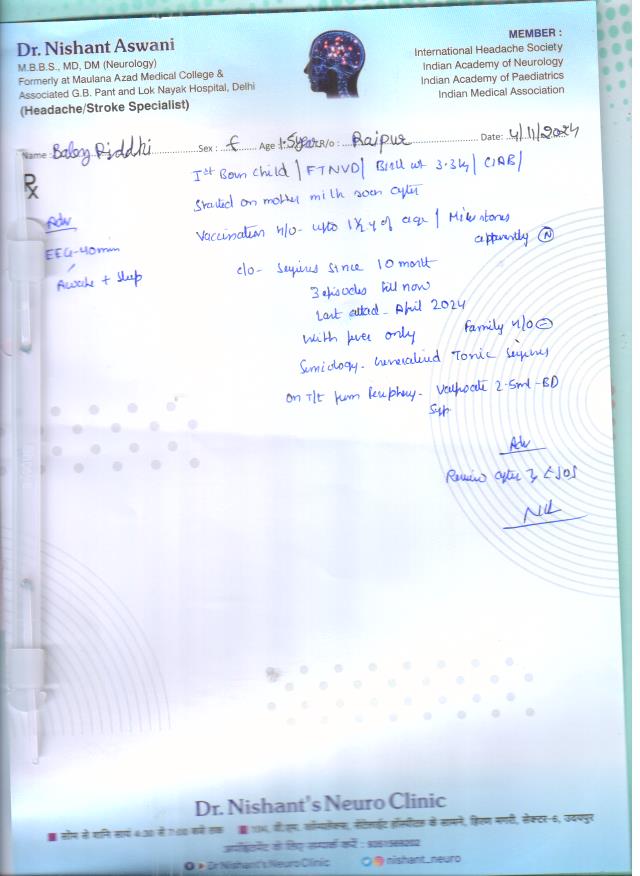 Dr. Nishant Aswani
M.B.B.S., MD, DM (Neurology)
Formerly at Maulana Azad Medical College &
Associated G.B. Pant and Lok Nayak Hospital, Delhi
(Headache/Stroke Specialist)
MEMBER :
International Headache Society
Indian Academy of Neurology
Indian Academy of Paediatrics
Indian Medical Association
Name : Baby Riddhi Sex : f Age : 1.5year R/o : Raipur Date: 4/11/2024
Rx
Ist Born child / FTNVD / Birth wt 3.3kg / CIAB /
Started on mother milk soon after
Vaccination H/o- upto 1½ y of age / Milestones
apparently N
Adv
EEG-40min
Awake + Sleep
c/o- Seizures since 10 month
3 episodes till now
Last attack - April 2024
With fever only Family H/o -
Semiology- Generalized Tonic Seizures
On T/t from Periphery- Valproate 2.5ml-BD
Syp
Adv
Review after
Dr. Nishant's Neuro Clinic
सोम से शनि सायं 4:30 से 7:00 बजे तक
हिरण मगरी, सेक्टर-6, उदयपुर
अपॉइंटमेंट के लिए सम्पर्क करें :
Dr Nishant's Neuro Clinic nishant_neuro